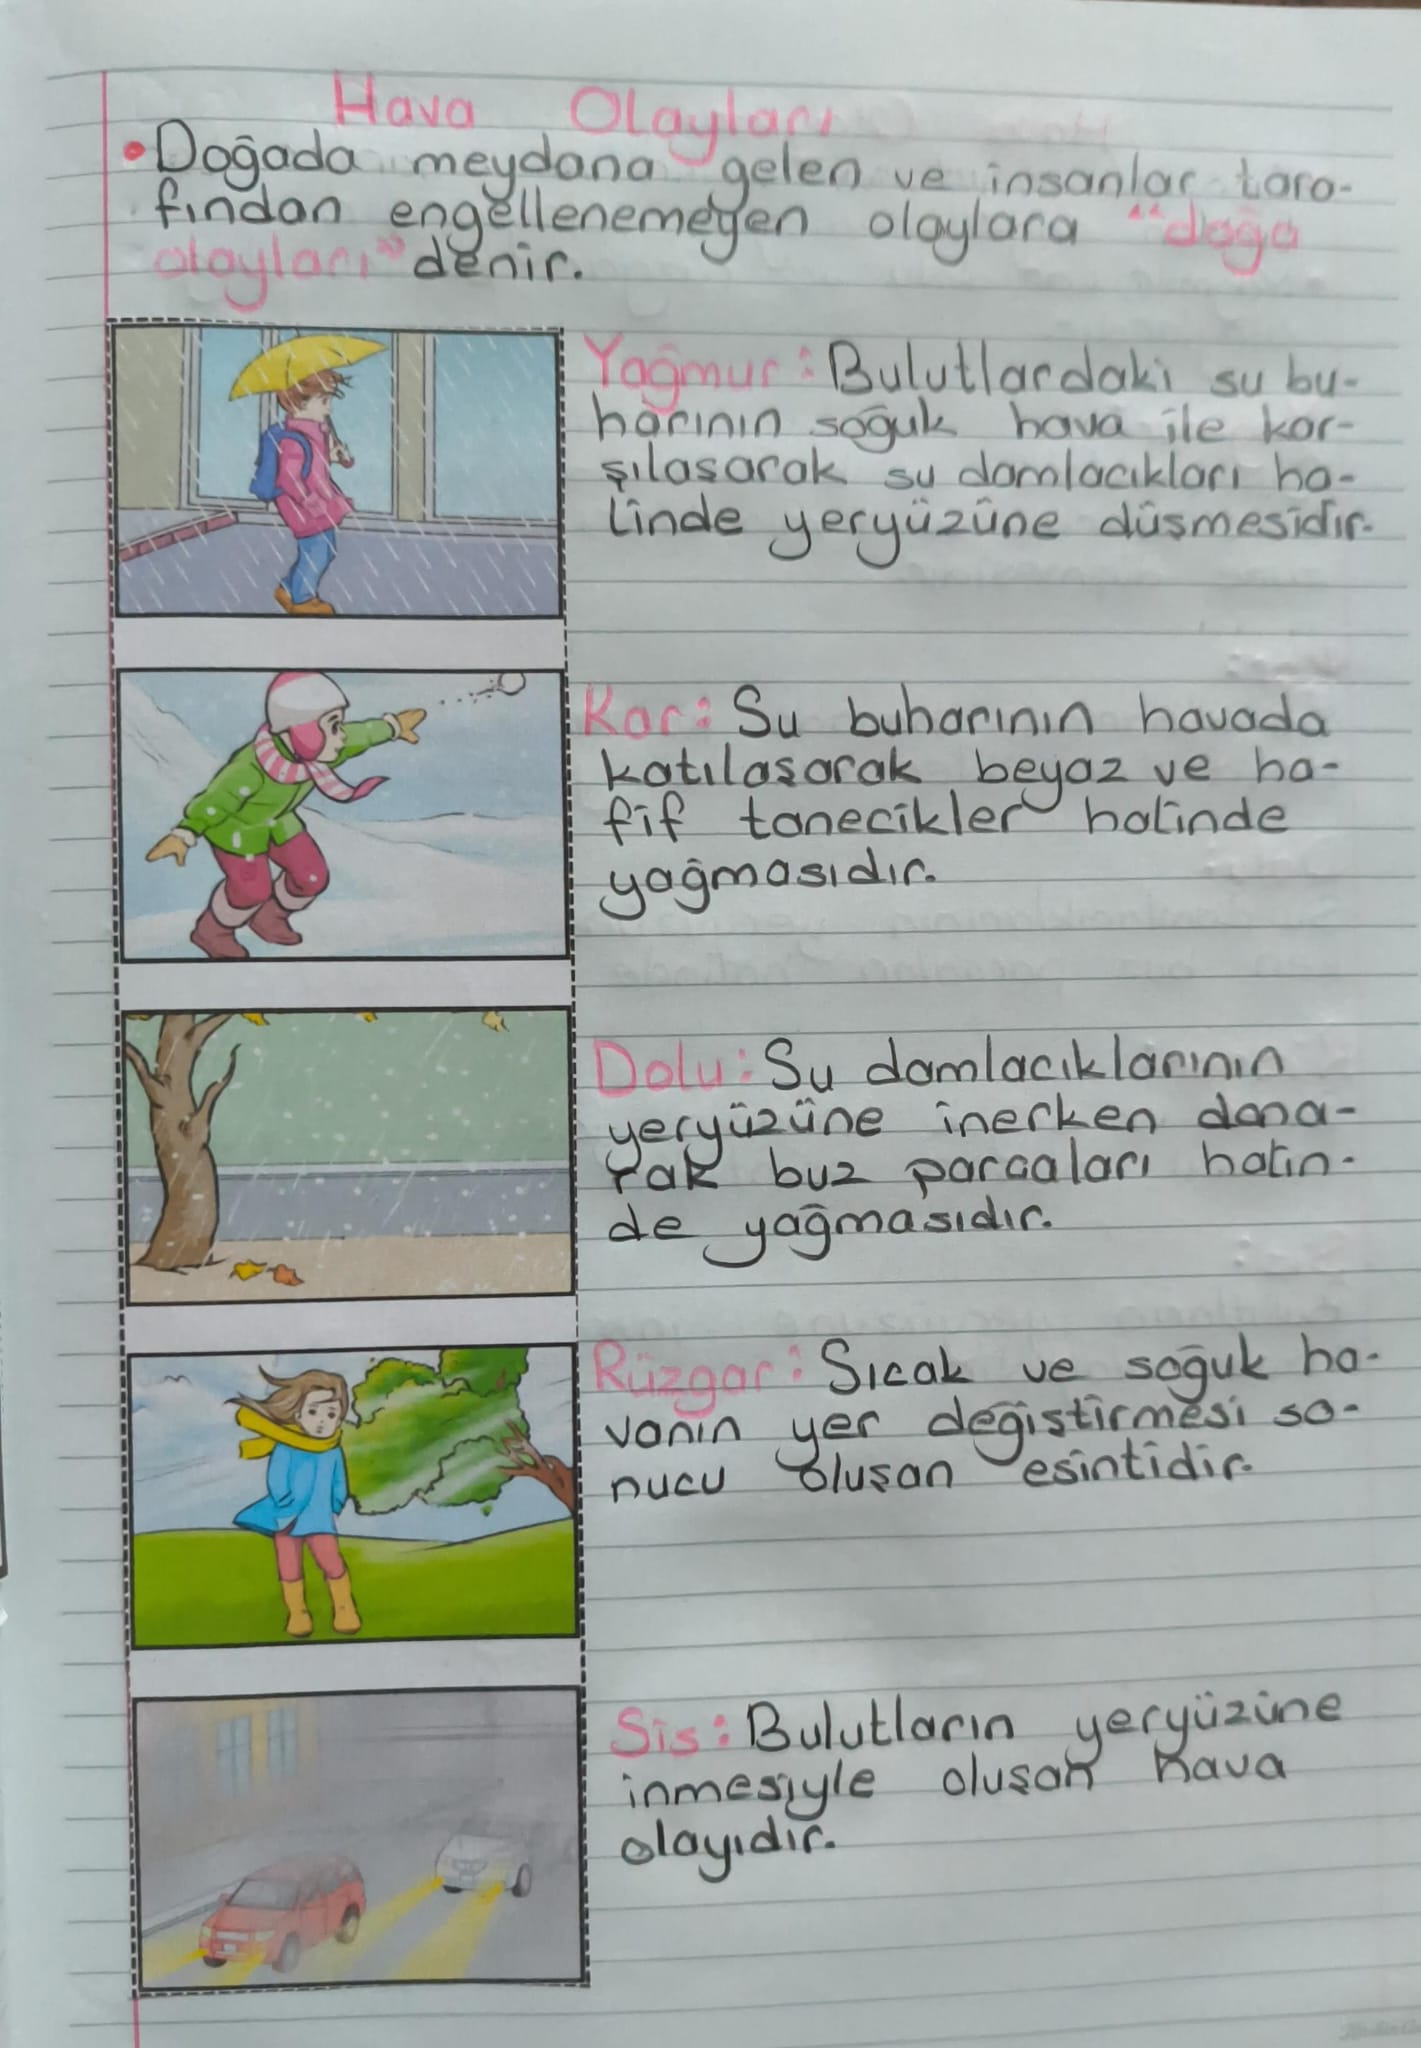 Hava Olayları
• Doğada meydana gelen ve insanlar tara-
fından engellenemeyen olaylara "doğa
olayları" denir.
Yağmur: Bulutlardaki su bu-
harının soğuk hava ile kar-
şılaşarak su damlacıkları ha-
linde yeryüzüne düşmesidir.
Kar: Su buharının havada
katılaşarak beyaz ve ha-
fif tanecikler halinde
yağmasıdır.
Dolu: Su damlacıklarının
yeryüzüne inerken dona-
rak buz parçaları halin-
de yağmasıdır.
Rüzgar: Sıcak ve soğuk ha-
vanın yer değiştirmesi so-
nucu oluşan esintidir.
Sis: Bulutların yeryüzüne
inmesiyle oluşan hava
olayıdır.